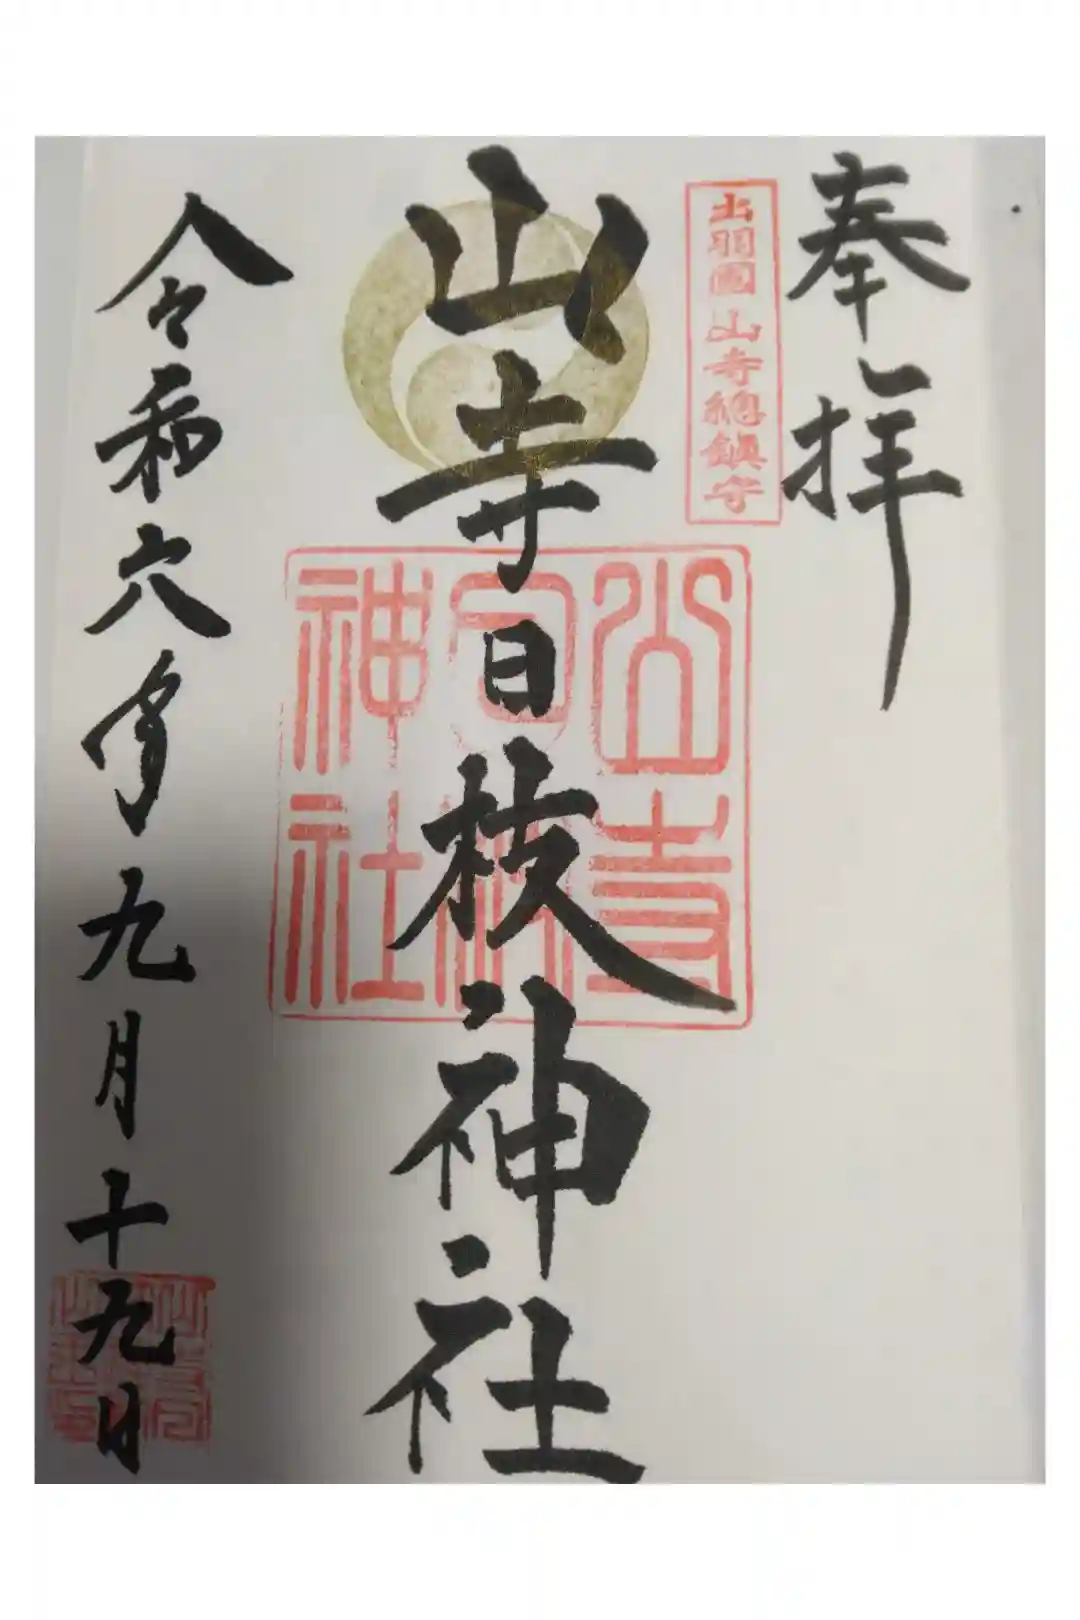 奉拝
出羽國 山寺總鎮守
山寺日枝神社
山寺
日枝
神社
令和六年九月十九日